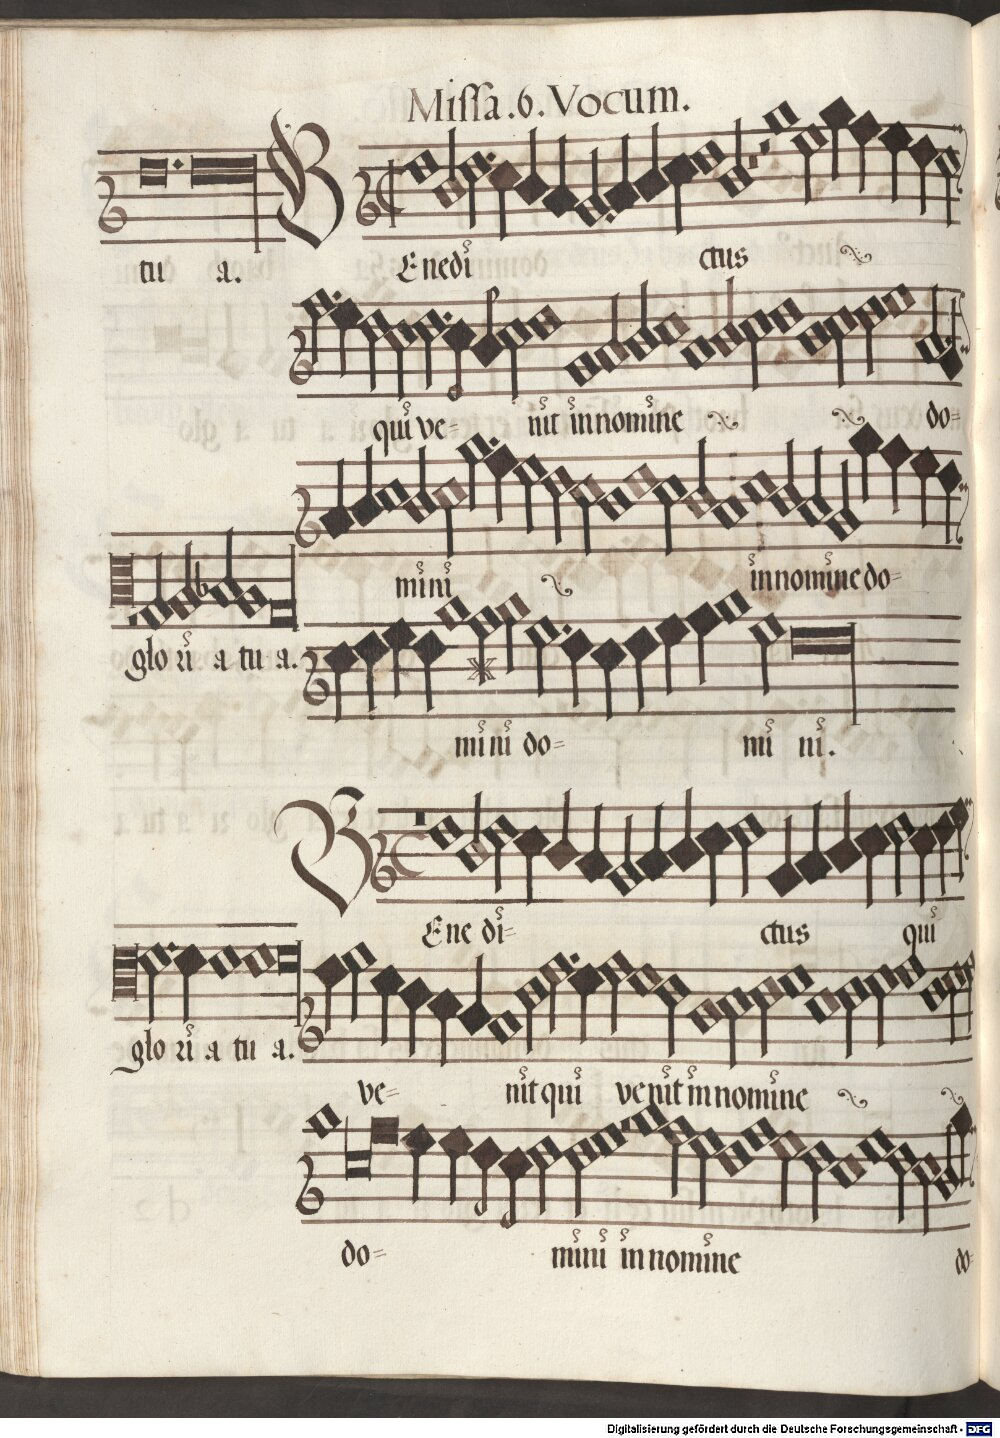 Missa. 6. Vocum.
tu a.
BEnedi ctus
qui ve= nit in nomine do=
mini in nomine do=
glo ri a tu a.
mi ni do= mi ni.
BEne di= ctus qui
glo ri a tu a.
ve= nit qui ve nit in nomine
do= mini in nomine do=
Digitalisierung gefördert durch die Deutsche Forschungsgemeinschaft - DFG